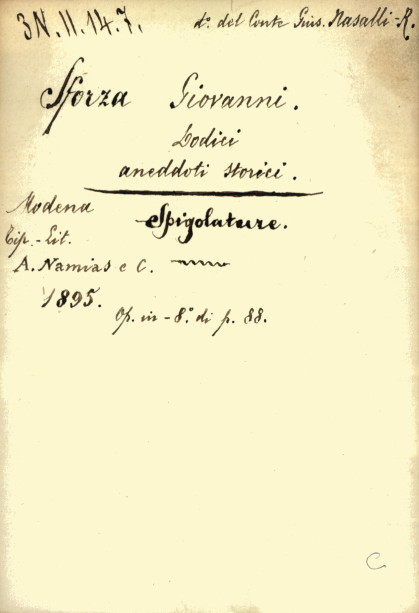 3N.II.14.7.
d.º del Conte Gius. Nasalli-R.
Sforza Giovanni.
Dodici
aneddoti storici.
Spigolature.
Modena
Tip.-Lit.
A. Namias e C.
1895.
Op. in-8.º di p. 88.
C